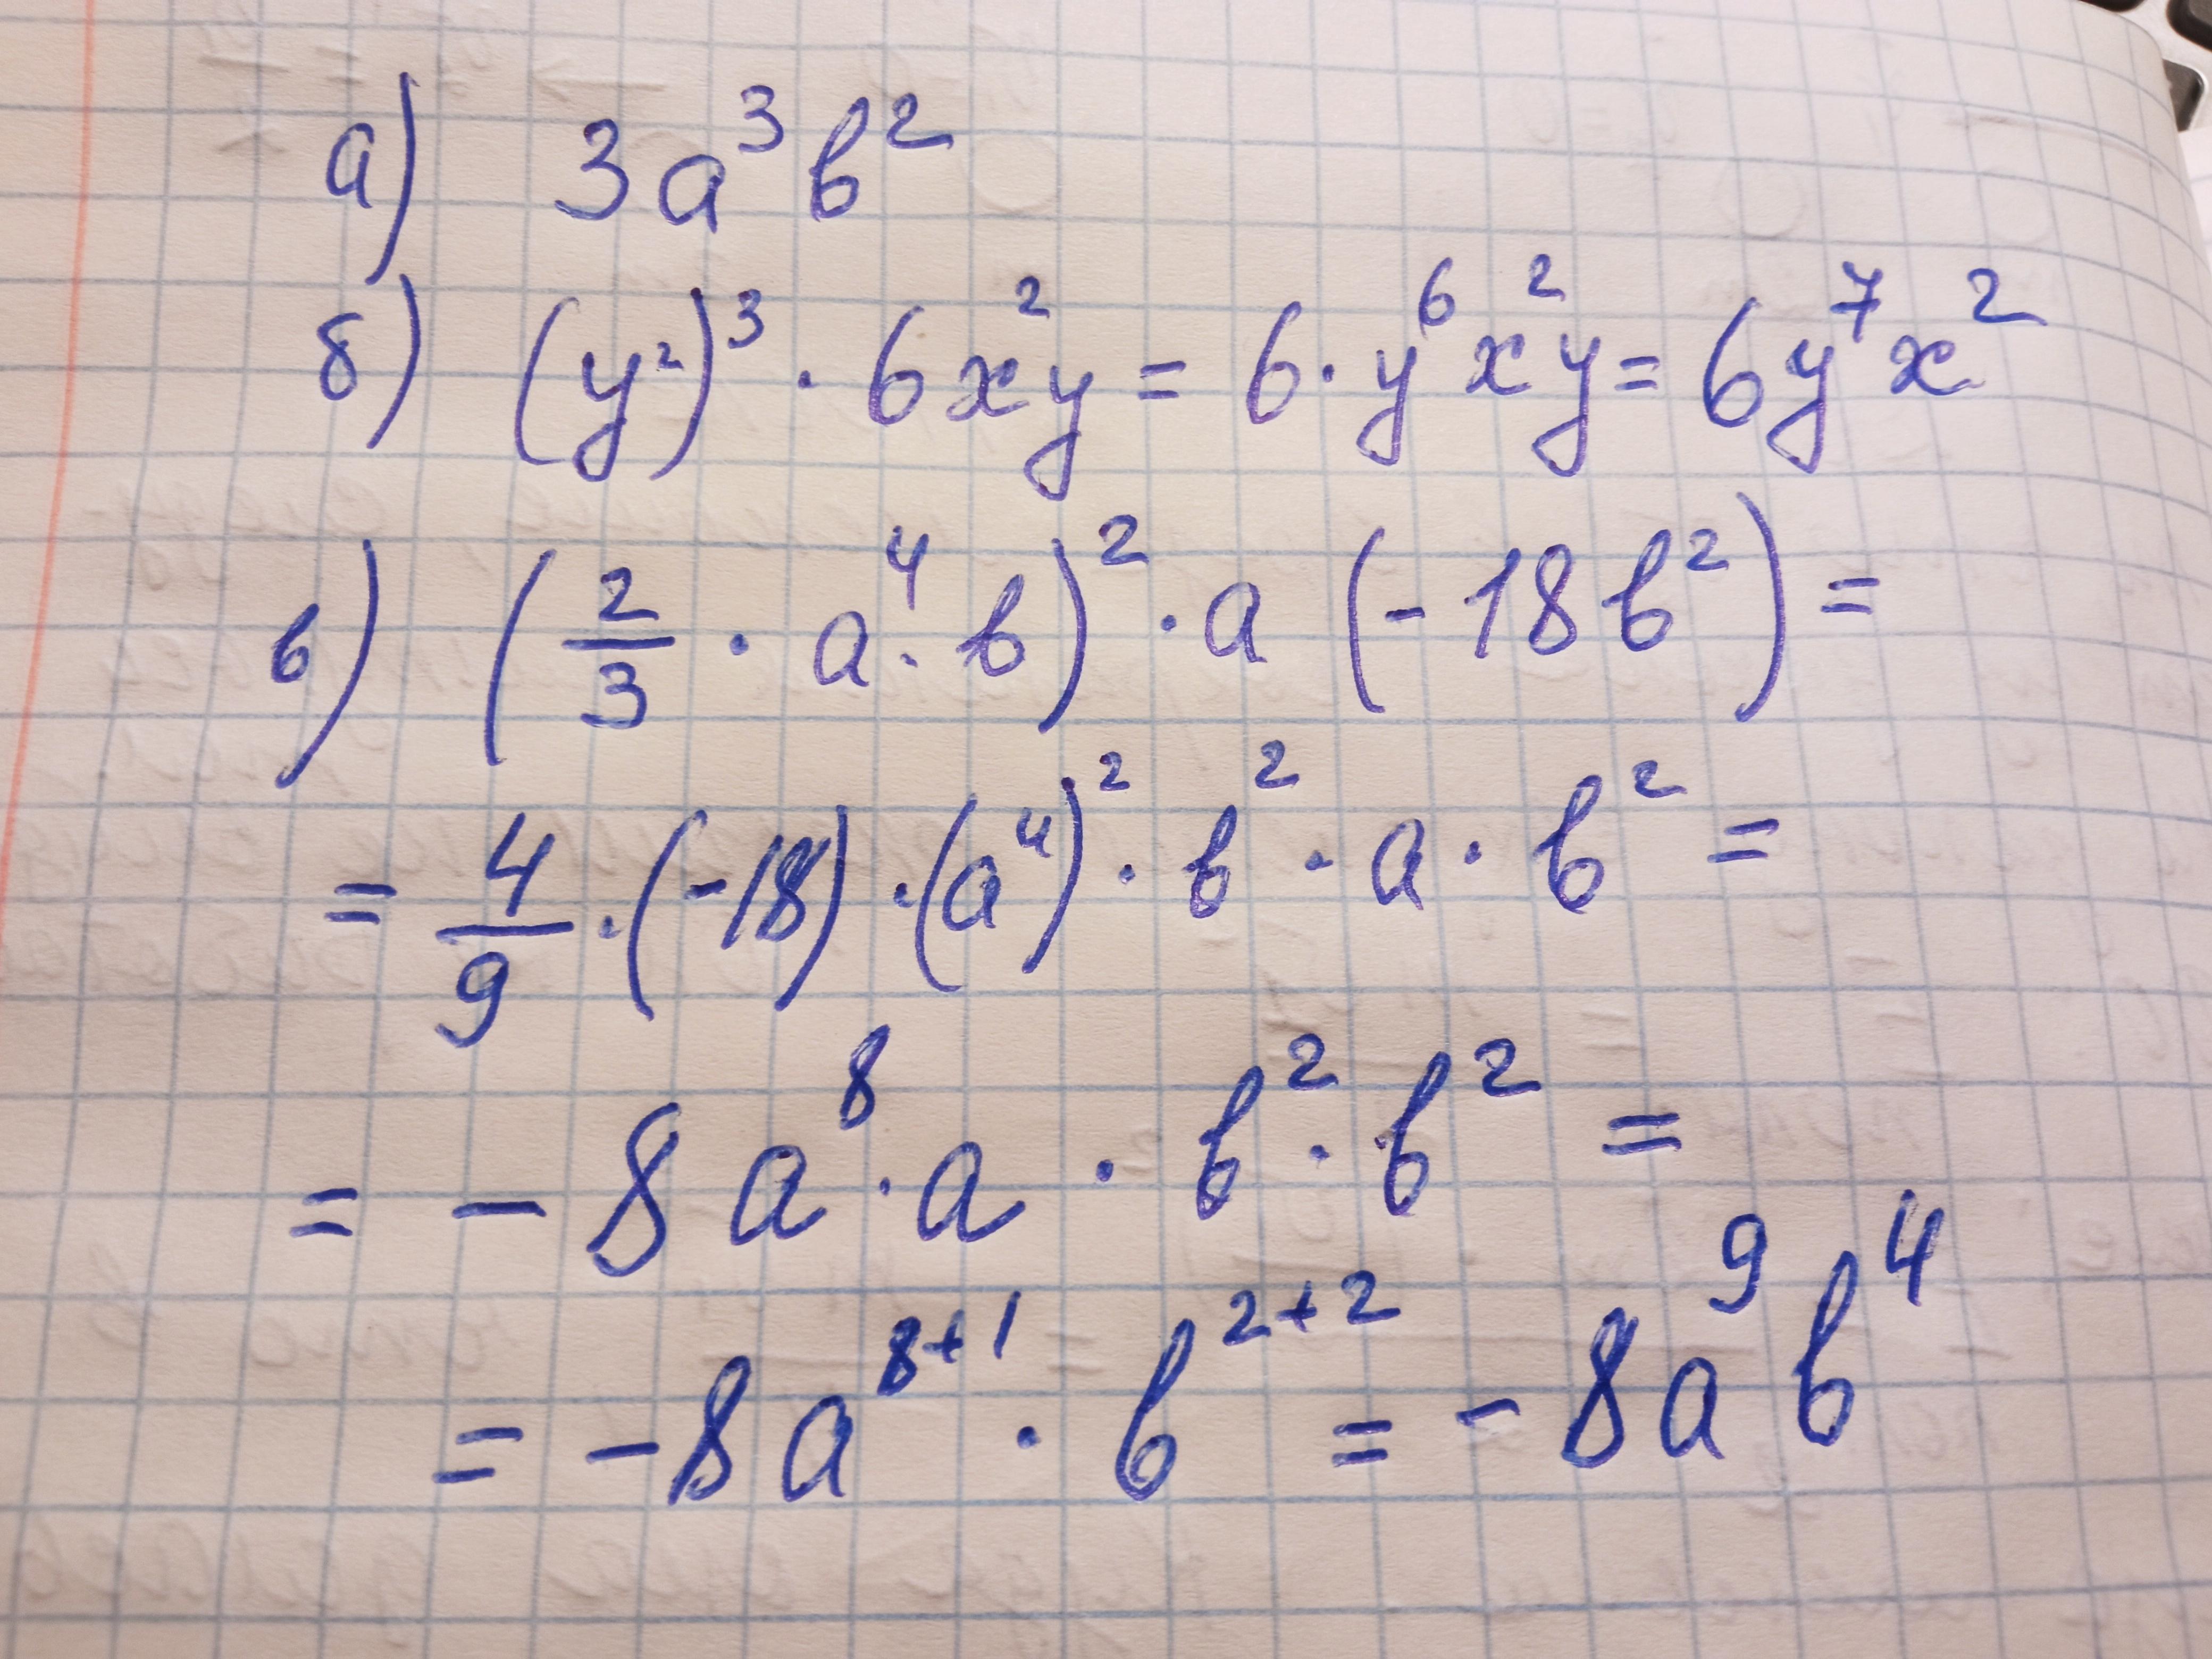 а) 3a³b²
б) (y²)³ · 6x²y = 6 · y⁶x²y = 6y⁷x²
в) (2/3 · a⁴ · b)² · a (-18b²) =
= 4/9 · (-18) · (a⁴)² · b² · a · b² =
= - 8a⁸ · a · b² · b² =
= - 8a⁸⁺¹ · b²⁺² = - 8a⁹b⁴